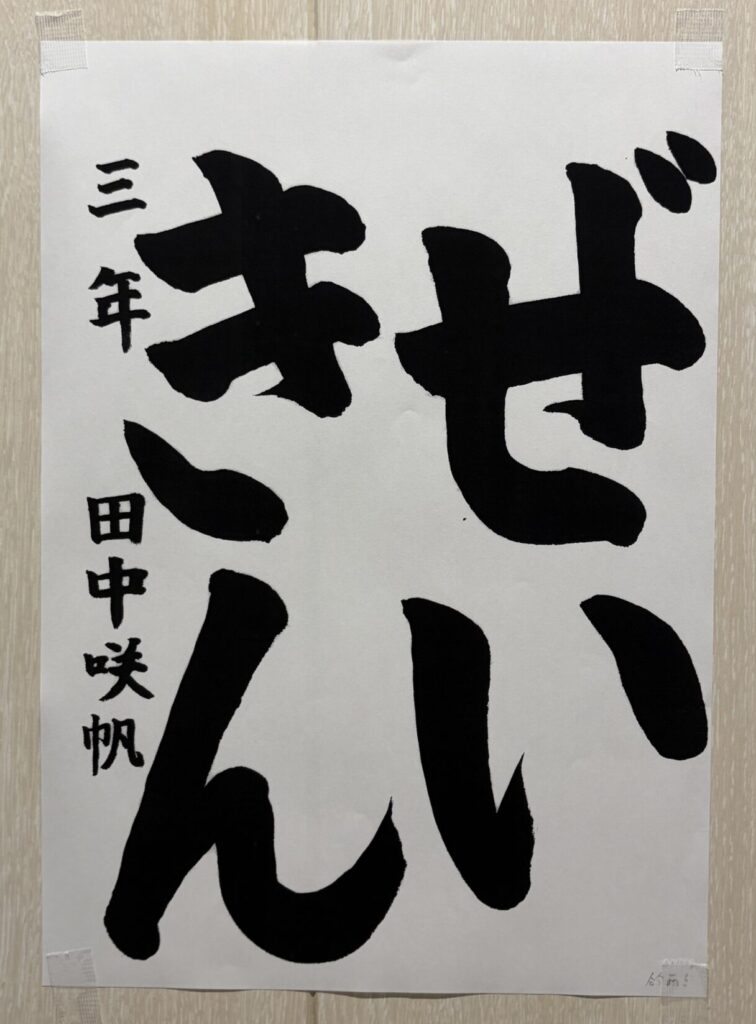 ぜい
きん
三年 田中咲帆